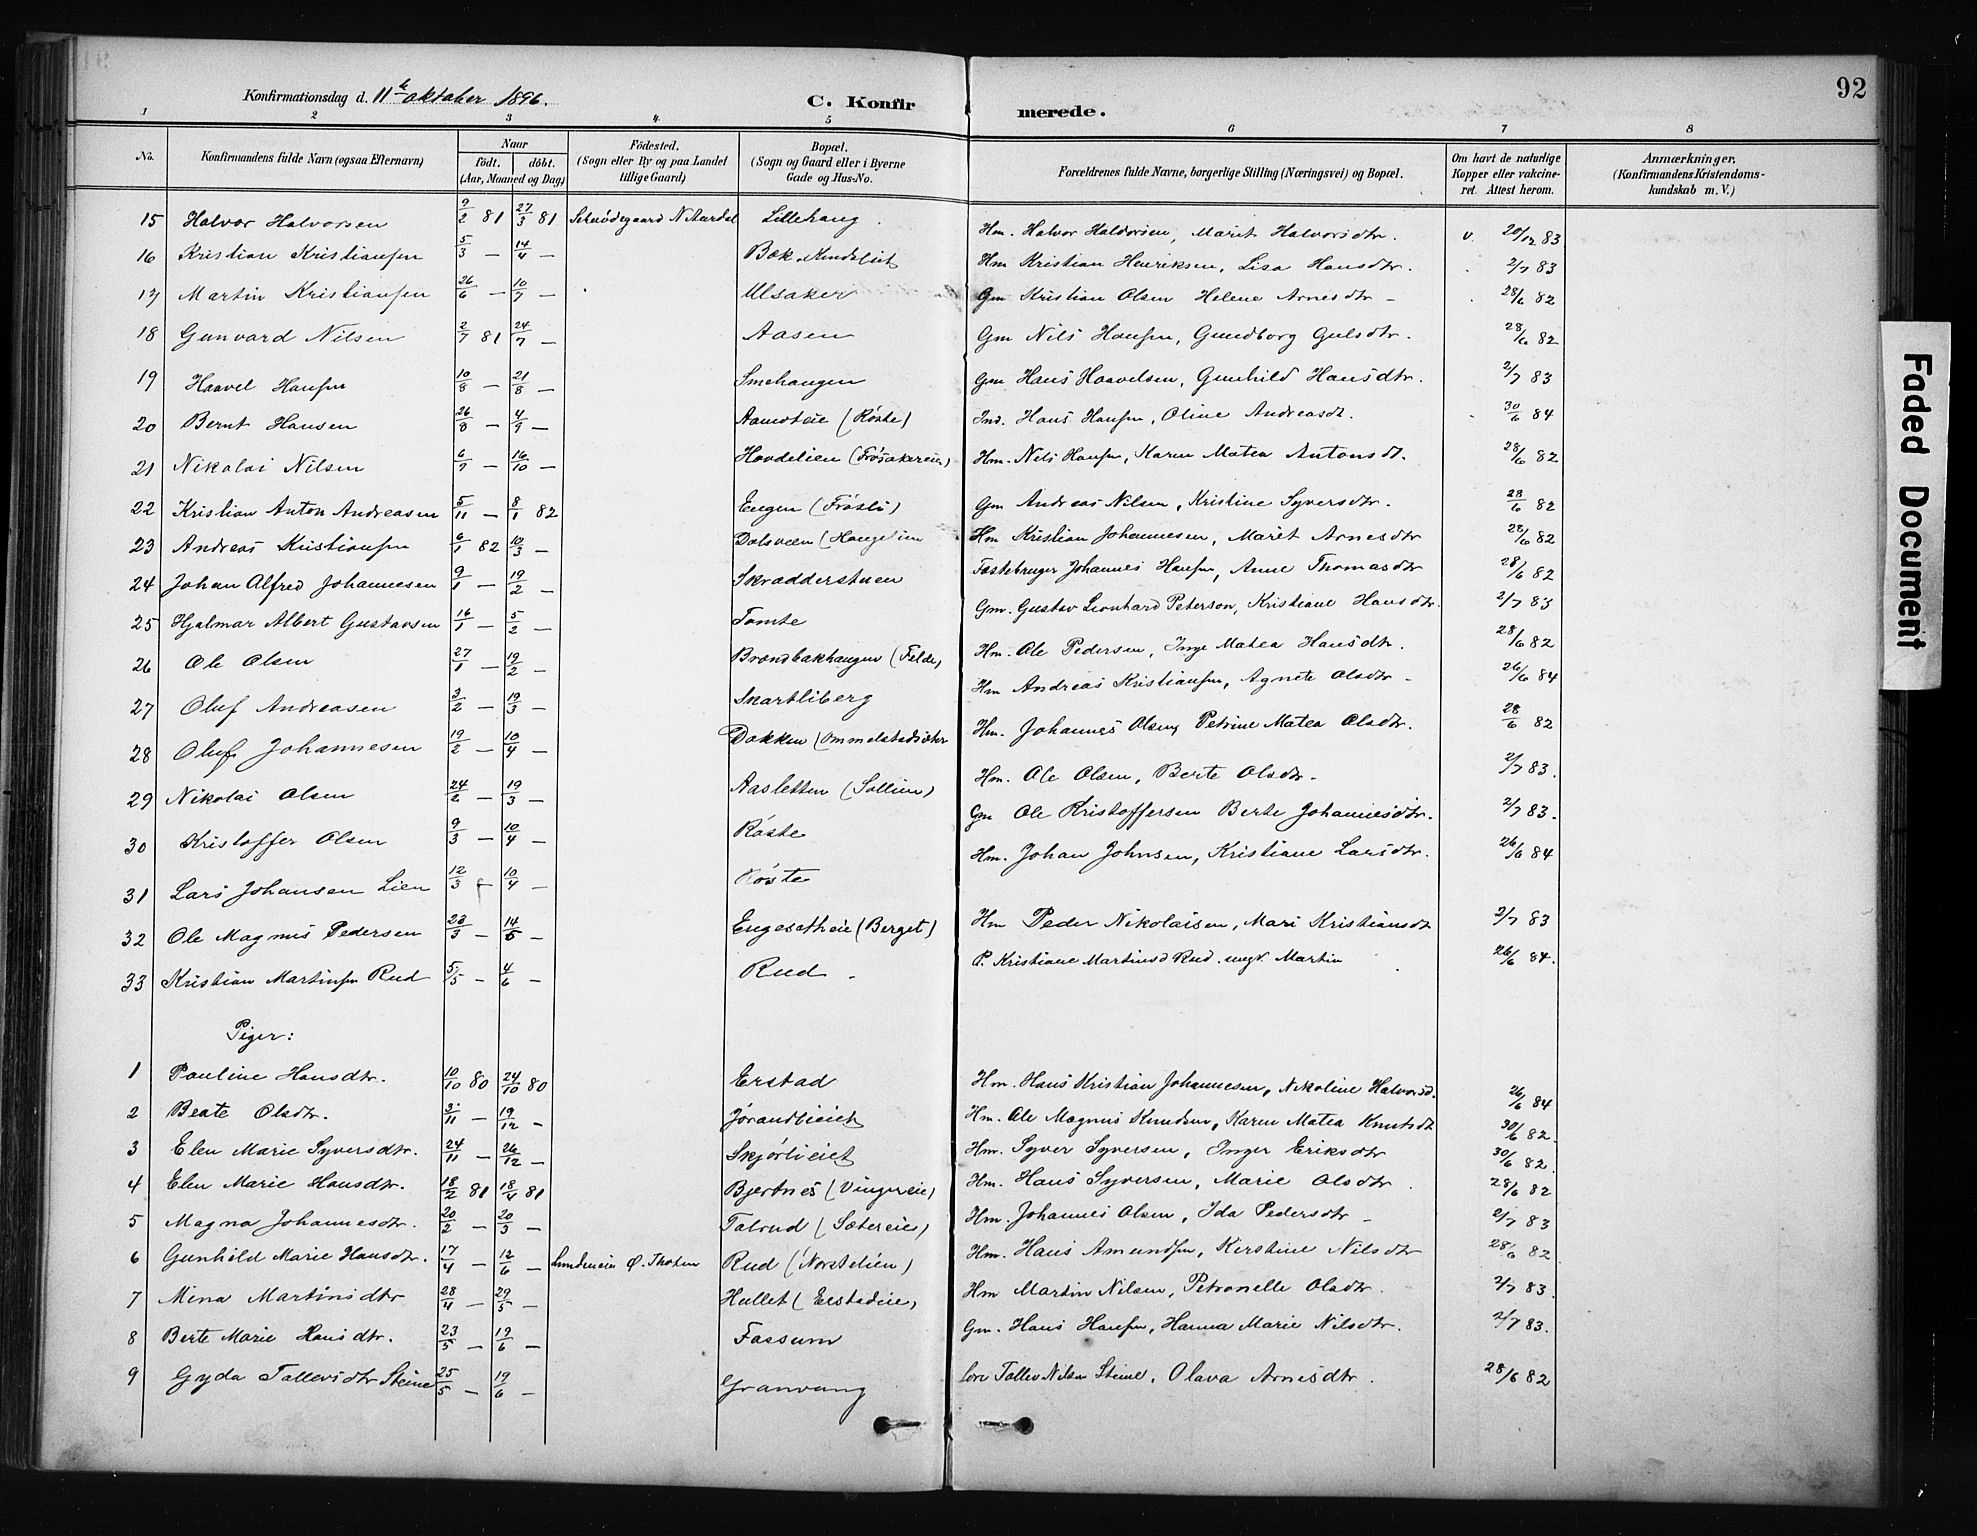 92
Konfirmationsdag d. 11te oktober 1896.
C. Konfirmerede.
1 2 3 4 5 6 7 8
No.
Konfirmandens fulde Navn (ogsaa Efternavn)
Naar
födt. döbt.
(Aar, Maaned og Dag)
Födested.
(Sogn eller By og paa Landet
tillige Gaard)
Bopæl.
(Sogn og Gaard eller i Byerne
Gade og Hus-No.
Forældrenes fulde Navne, borgerlige Stilling (Næringsvei) og Bopæl.
Om havt de naturlige
Kopper eller vakcine-
ret. Attest herom.
Anmærkninger,
(Konfirmandens Kristendoms-
kundskab m. V.)
15 Halvor Halvorsen 9/2 81 27/3 81 N. Aurdal Lillehaug Hm. Halvor Haldorsen, Marit Halvorsdtr. v. 20/12 83
16 Kristian Kristiansen 5/3 — 14/4 — Hm Kristian Henriksen, Lisa Hansdtr. 2/7 83
17 Martin Kristiansen 26/6 — 10/7 — Ulsaker Gm Kristian Olsen Helene Arnesdtr — 28/6 82
18 Gunvard Nilsen 2/7 81 24/7 — Aasen Gm Nils Hansen, Gundborg Gulsdtr. 28/6 82
19 Haavel Hansen 10/8 — 21/8 — Smehaugen Gm Hans Haavelsen, Gunhild Hansdtr. 2/7 83
20 Bernt Hansen 26/8 — 4/9 — (Röste) Ind. Hans Hansen, Oline Andreasdt. 30/6 84
21 Nikolai Nilsen 6/9 — 16/10 — Hovdelien (Frösakereie) Hm. Nils Hansen, Karen Matea Antonsdt. 28/6 82
22 Kristian Anton Andreasen 5/11 — 8/1 82 Engen (Frösli) Gm Andreas Nilsen, Kristine Syversdtr. 28/6 82
23 Andreas Kristiansen 6/1 82 10/3 — Dalsveen Hm Kristian Johannesen, Marit Arnesdtr 28/6 82
24 Johan Alfred Johannesen 9/1 — 19/2 — Skrædderstuen Fæstebruger Johannes Hansen, Anne Thomasdtr 28/6 82
25 Hjalmar Albert Gustavsen 16/1 — 5/2 — Tomte Gm. Gustav Leonhard Peterson, Kristiane Hansdtr. 2/7 83
26 Ole Olsen 27/1 — 19/2 — Brændbakhaugen (Felde) Hm. Ole Pedersen, Inge Matea Hansdtr. 28/6 82
27 Oluf Andreasen 3/2 — 19/3 — Skartliberg Hm Andreas Kristiansen, Agnete Olsdtr — 26/6 84
28 Oluf Johannesen 19/2 — 10/4 — Dokken (Ommelstadsæter Hm. Johannes Olsen, Petrine Matea Olsdtr. 28/6 82
29 Nikolai Olsen 24/2 — 19/3 — Aasletten (Sollien) Hm. Ole Olsen, Berte Olsdtr. 2/7 83.
30 Kristoffer Olsen 9/3 — 10/4 — Röste Gm Ole Kristoffersen Berte Johannesdtr. 2/7 83.
31 Lars Johansen Lien 12/3 — 10/4 — Röste Hm. Johan Johnsen, Kristiane Larsdtr. 26/6 84
32 Ole Magnus Pedersen 23/3 — 14/5 — Engesætheie (Berget) Hm Peder Nikolaisen, Mari Kristiansdt 2/7 83
33 Kristian Martinsen Rud 5/5 — 4/6 — Rud P. Kristiane Martinsd Rud. ungk. Martin 26/6 84.
Piger:
1 Pauline Hansdtr. 10/10 80 24/10 80 Erstad Hm. Hans Kristian Johannesen, Nikoline Halvorsd. 26/6 84
2 Beate Olsdtr. 3/11 — 19/12 — Jørandlieiet Hm. Ole Magnus Knudsen, Karen Matea Knutsdt 30/6 82.
3 Elen Marie Syversdtr. 24/11 — 26/12 — Skjørlieiet Hm. Syver Syversen, Inger Eriksdtr 30/6 82.
4 Elen Marie Hansdtr. 18/2 81 18/4 81 Bjertnes (Vingereie) Hm. Hans Syversen, Marie Olsdtr 28/6 82
5 Magna Johannesdtr. 20/2 — 20/3 — Talrud (Sætereie) Hm. Johannes Olsen, Ida Pedersdtr — 2/7 83
6 Gunhild Marie Hansdtr. 17/4 — 12/6 — Ø. Thoten Rud (Norstelien) Hm. Hans Amundsen, Kerstine Nilsdtr 28/6 82
7 Mina Martinsdtr 28/4 — 29/5 — Hullet (Erstadeie) Hm Martin Nilsen, Petronelle Olsdtr. 2/7 83.
8 Berte Marie Hansdtr. 23/5 — 19/6 — Fossum Gm. Hans Hansen, Hanna Marie Nilsdtr. 2/7 83.
9 Gyda Tollevsdtr Steine 25/5 — 19/6 — Granvang Tollev Nilsen Steine, Olava Arnesdtr. 28/6 82
Faded Document